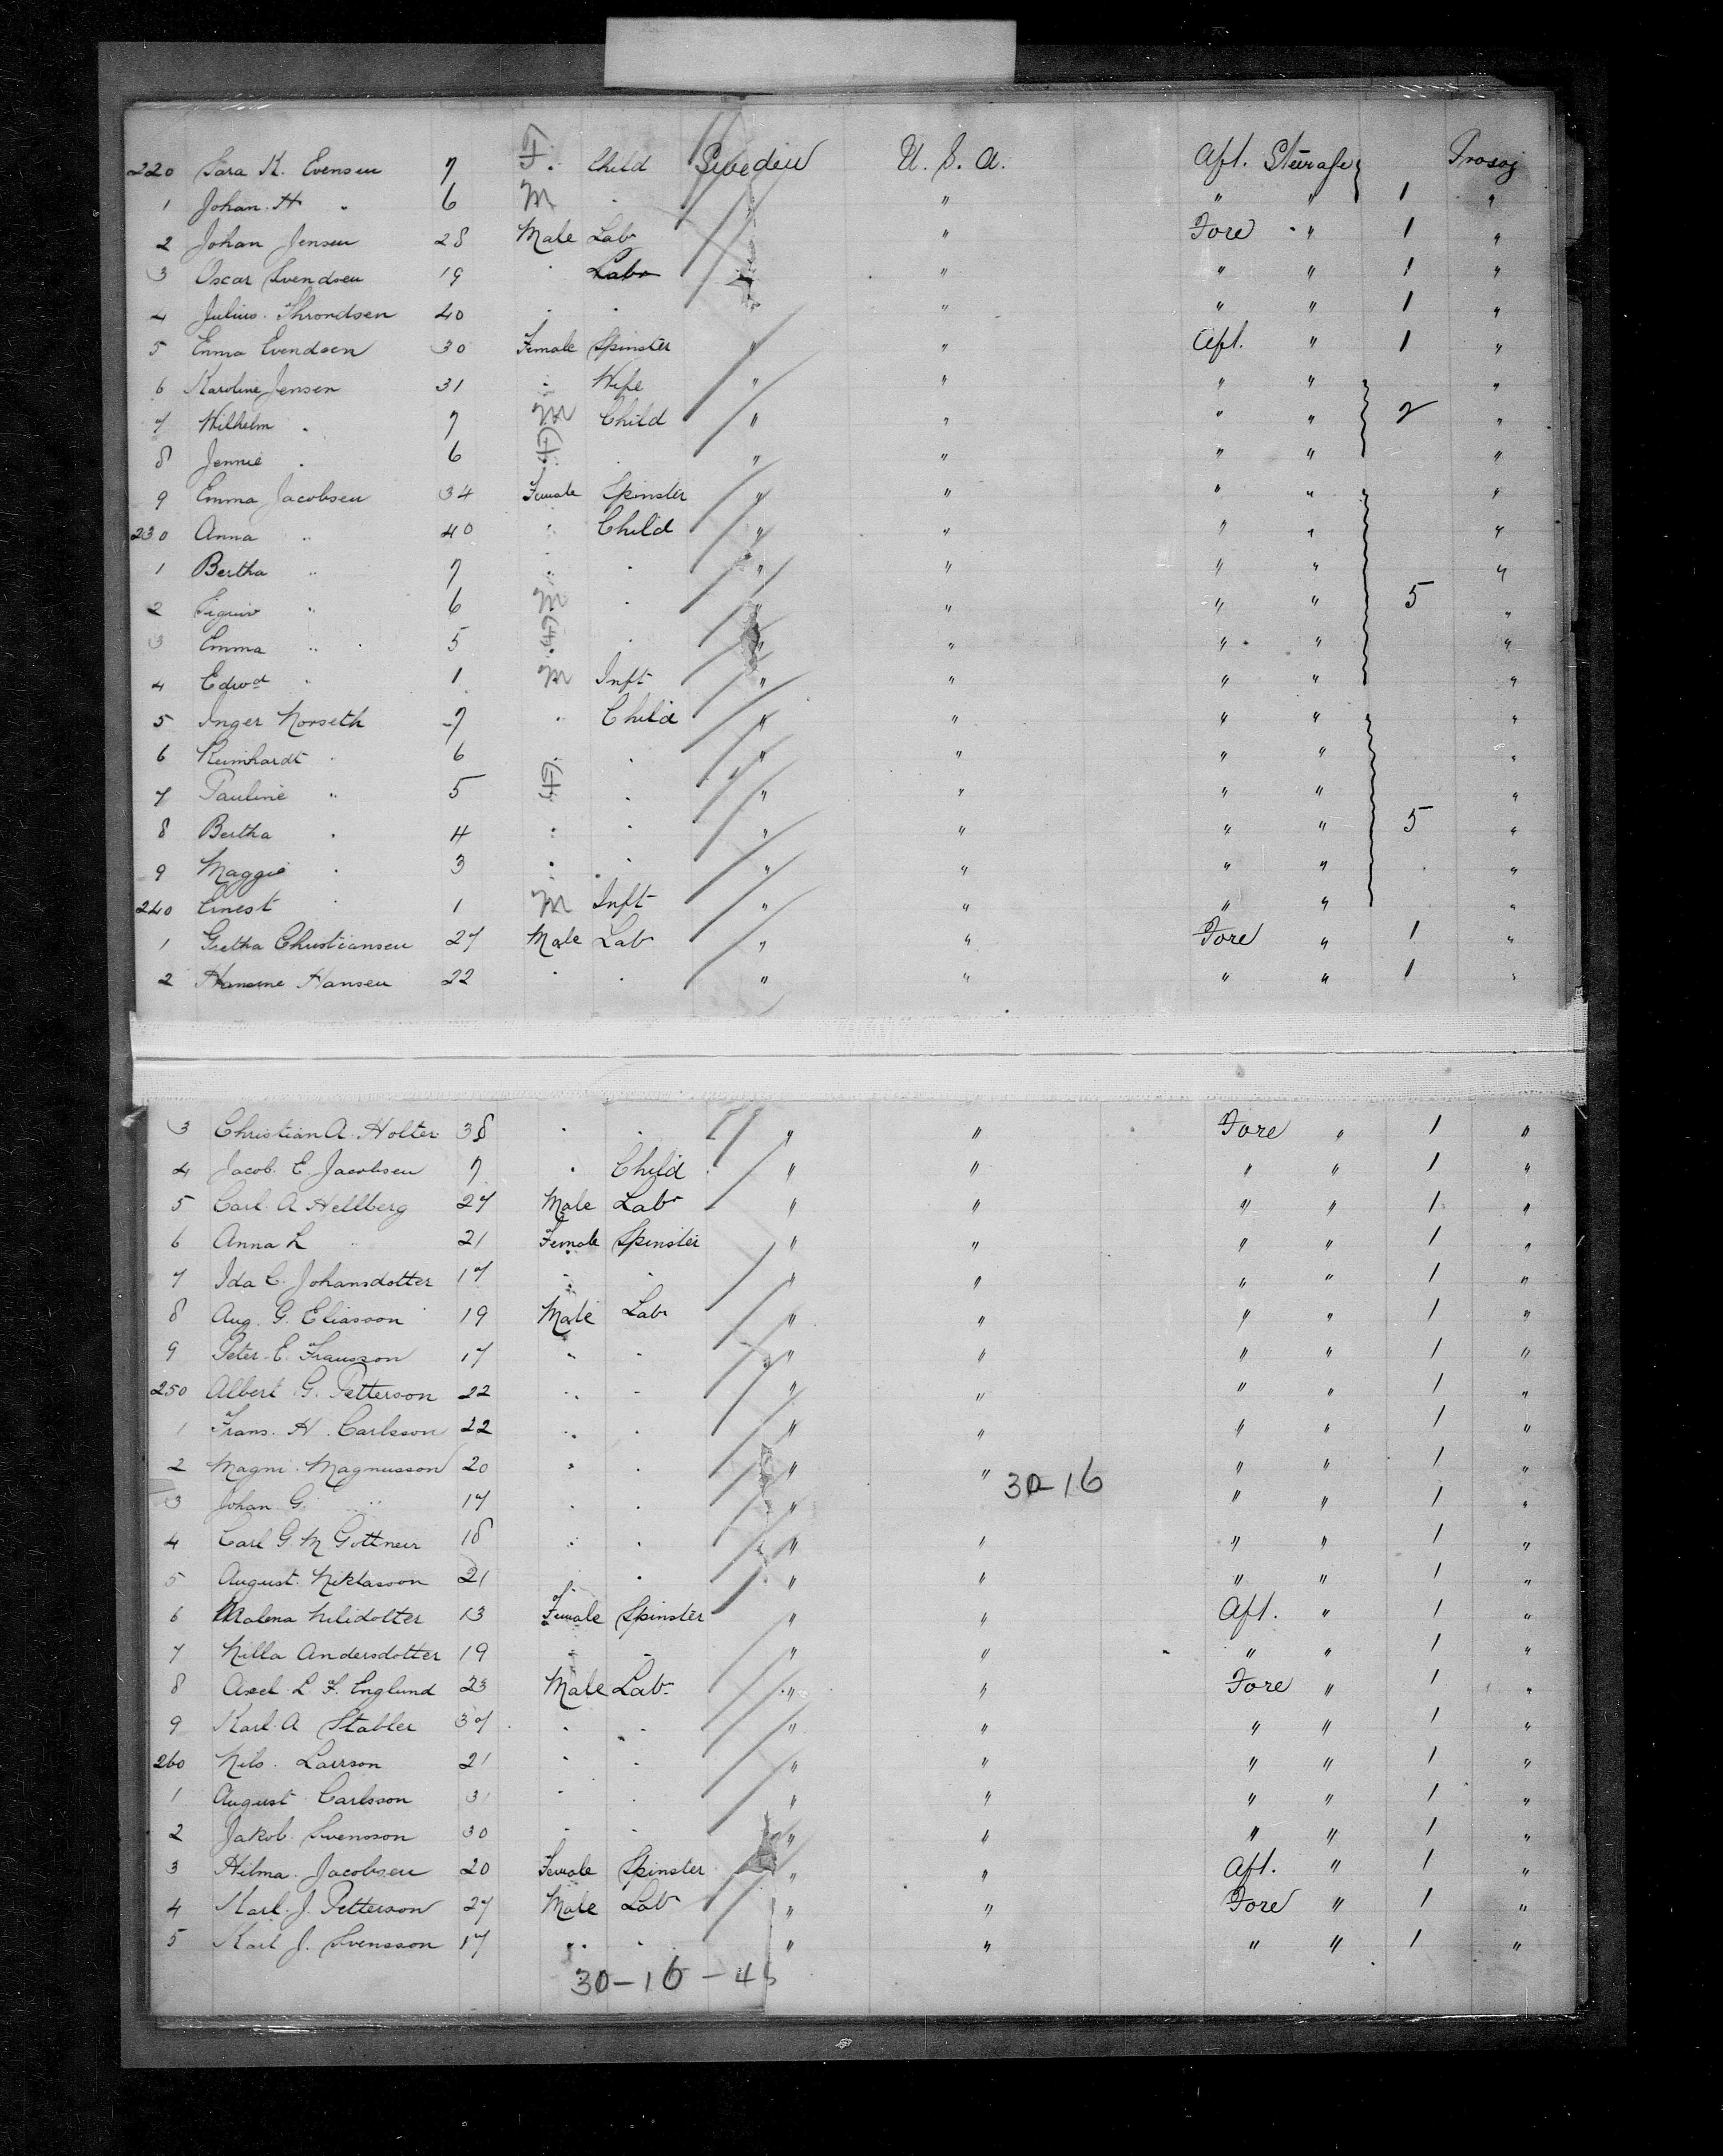 220 Sara K. Evensen 7 F. Child Sweden U. S. A. Aft. Steerage Prosaj
1 Johan H " 6 M " " " 1 "
2 Johan Jensen 28 Male Lab " Fore " 1 "
3 Oscar Svendsen 19 " Labr " " " 1 "
4 Julius Throndsen 40 " " " " " 1 "
5 Emma Evendsen 30 Female Spinster " " Aft. " 1 "
6 Karoline Jensen 31 " Wife " " " " "
7 Wilhelm " 7 M Child " " " " 2 "
8 Jennie " 6 (F) " " " " " "
9 Emma Jacobsen 34 Female Spinster " " " " "
230 Anna " 40 " Child " " " " "
1 Bertha " 7 " " " " " " "
2 " 6 M " " " " " 5 "
3 Emma " 5 (F) " " " " " "
4 Edwd " 1 M Inft " " " " "
5 Inger Norseth 7 " Child " " " " "
6 Reinhardt " 6 " " " " " " "
7 Pauline " 5 (F) " " " " " "
8 Bertha " 4 " " " " " " 5 "
9 Maggie " 3 " " " " " " "
240 Ernest " 1 M Inft " " " " "
1 Gretha Christiansen 27 Male Lab " " Fore " 1 "
2 Hansine Hansen 22 " " " " " " 1 "
3 Christian A. Holter 38 " " " " Fore " 1 "
4 Jacob E. Jacobsen 7 " Child " " " " 1 "
5 Carl A Hellberg 27 Male Labr " " " " 1 "
6 Anna L " 21 Female Spinster " " " " 1 "
7 Ida C. Johansdotter 17 " " " " " " 1 "
8 Aug. G. Eliasson 19 Male Lab " " " " 1 "
9 Peter E. Fransson 17 " " " " " " 1 "
250 Albert G. Petterson 22 " " " " " " 1 "
1 Frans. H. Carlsson 22 " " " " " " 1 "
2 Magni Magnusson 20 " " " " 30-16 " " 1 "
3 Johan G. " 17 " " " " " 1 "
4 Carl G. M Gottneir 18 " " " " " " 1 "
5 August Niklasson 21 " " " " " 1 "
6 Malena Nilidotter 13 Female Spinster " " Aft. " 1 "
7 Nilla Andersdotter 19 " " " " " " 1 "
8 Axel L. F. Englund 23 Male Lab " " Fore " 1 "
9 Karl A Stabler 37 " " " " " " 1 "
260 Nils Larrson 21 " " " " " " 1 "
1 August Carlsson 31 " " " " " " 1 "
2 Jakob Svensson 30 " " " " " " 1 "
3 Hilma Jacobsen 20 Female Spinster " " Aft. " 1 "
4 Karl J. Petterson 27 Male Lab " " Fore " 1 "
5 Karl J. Svensson 17 " " " " " " 1 "
30-16-